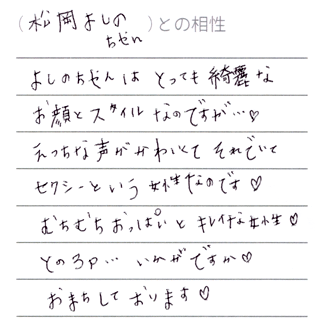 (松岡よしの
ちせん)との相性
よしのちせんは とっても綺麗な
お顔とスタイルなのですが…♡
えっちな声がかわいくて それでいて
セクシーという女性なのです♡
むちむちおっぱいとキレイな女性♡
との3P… いかがですか♡
おまちしております♡